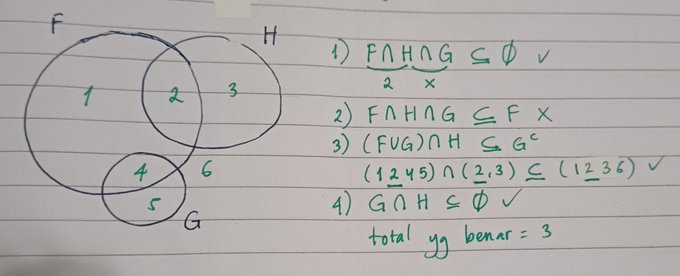 F
H
1
2
3
4
6
5
G
1) F∩H∩G ⊆ ∅ ✓
2 x
2) F∩H∩G ⊆ F X
3) (F∪G)∩H ⊆ Gᶜ
(1 2 4 5) ∩ (2,3) ⊆ (1 2 3 6) ✓
4) G∩H ⊆ ∅ ✓
total yg benar = 3